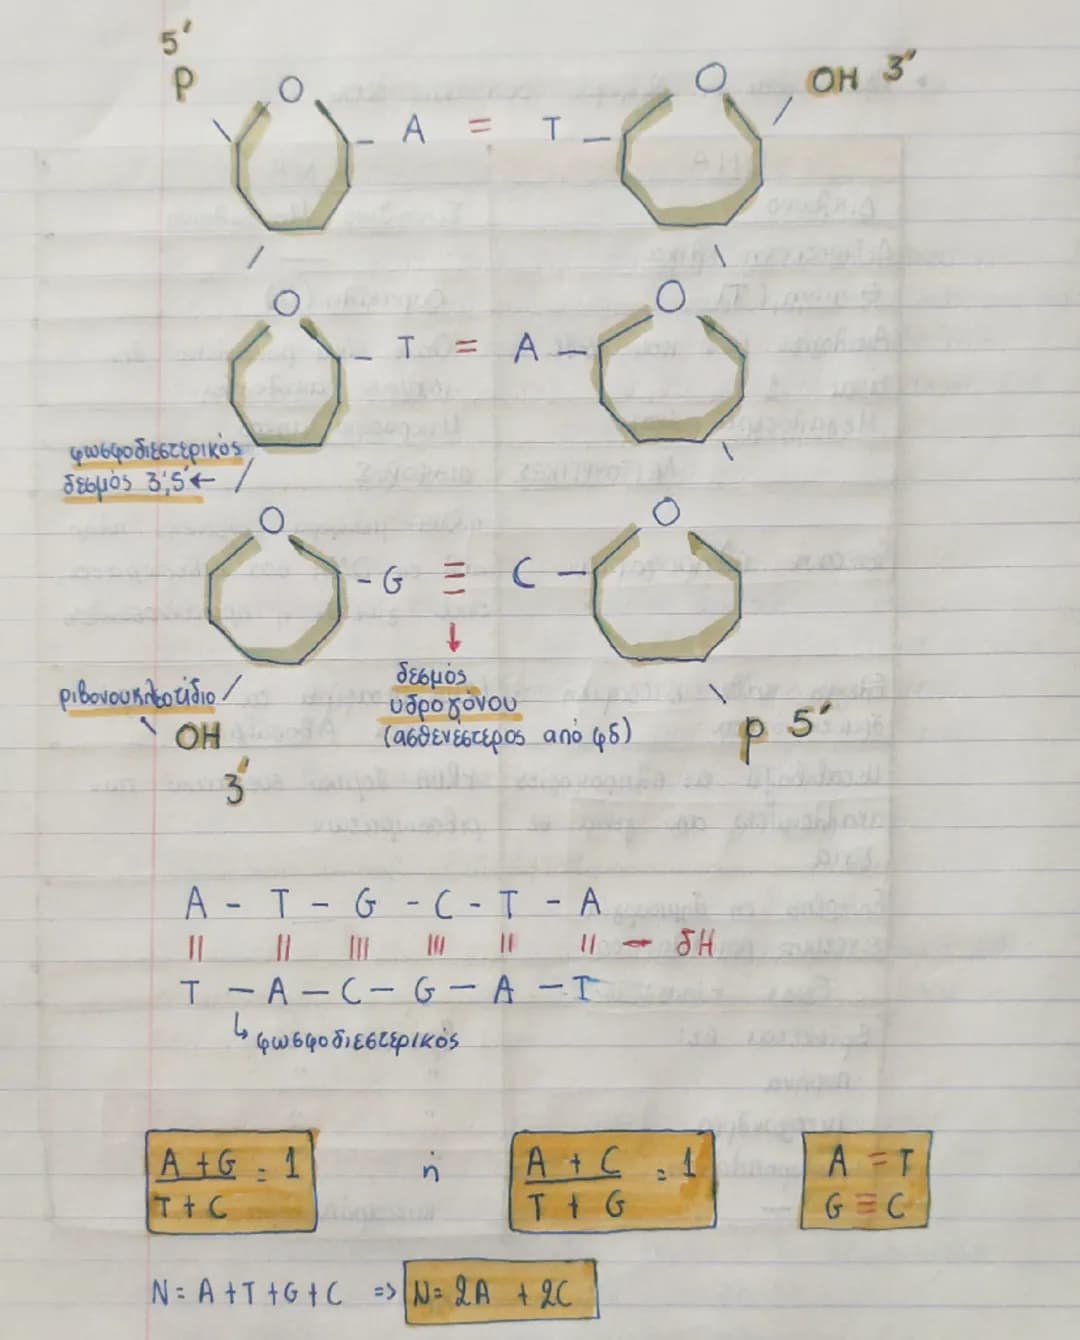 5'
P O O OH 3'
A = T
O O
T = A
φωσφοδιεστερικός
δεσμός 3',5' ←
O O
G ≡ C
↓
ριβονουκλεοτίδιο
δεσμός
υδρογόνου
(ασθενέστερος από φδ)
OH
3'
P 5'
A - T - G - C - T - A
|| || ||| ||| || || → δΗ
T - A - C - G - A - T
↳ φωσφοδιεστερικός
A + G / T + C = 1 ή A + C / T + G = 1
A = T
G ≡ C
N = A + T + G + C => N = 2A + 2C